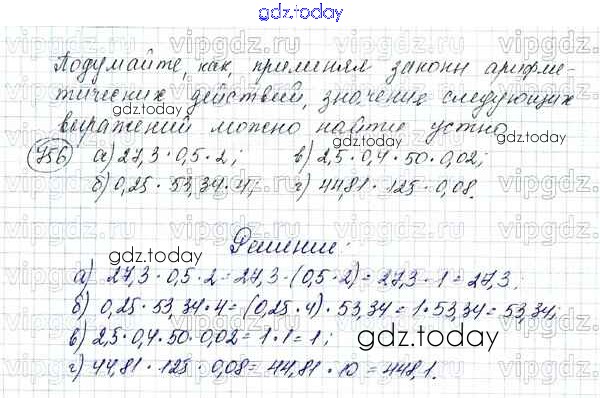 gdz.today
Подумайте, как, применяя законы арифме-
тических действий, значения следующих
gdz.today
выражений можно найти устно
gdz.today
756 а) 27,3 · 0,5 · 2; в) 2,5 · 0,4 · 50 · 0,02;
б) 0,25 · 53,34 · 4; г) 44,81 · 125 · 0,08.
gdz.today
Решение:
gdz.today
а) 27,3 · 0,5 · 2 = 27,3 · (0,5 · 2) = 27,3 · 1 = 27,3;
б) 0,25 · 53,34 · 4 = (0,25 · 4) · 53,34 = 1 · 53,34 = 53,34;
в) 2,5 · 0,4 · 50 · 0,02 = 1 · 1 = 1;
gdz.today
г) 44,81 · 125 · 0,08 = 44,81 · 10 = 448,1.